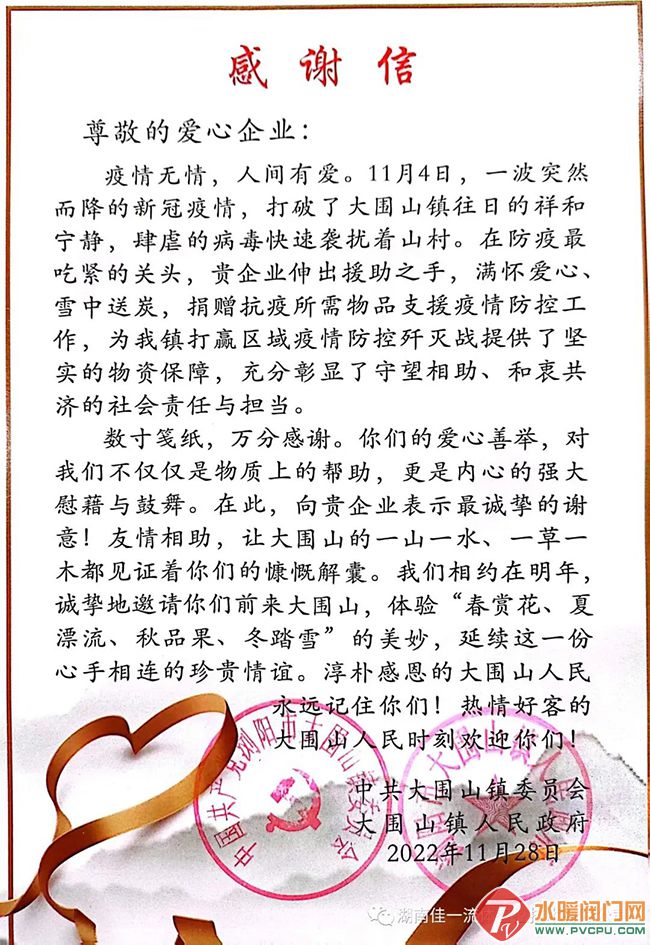 感谢信
尊敬的爱心企业：
疫情无情，人间有爱。11月4日，一波突然
而降的新冠疫情，打破了大围山镇往日的祥和
宁静，肆虐的病毒快速袭扰着山村。在防疫最
吃紧的关头，贵企业伸出援助之手，满怀爱心、
雪中送炭，捐赠抗疫所需物品支援疫情防控工
作，为我镇打赢区域疫情防控歼灭战提供了坚
实的物资保障，充分彰显了守望相助、和衷共
济的社会责任与担当。
数寸笺纸，万分感谢。你们的爱心善举，对
我们不仅仅是物质上的帮助，更是内心的强大
慰藉与鼓舞。在此，向贵企业表示最诚挚的谢
意！友情相助，让大围山的一山一水、一草一
木都见证着你们的慷慨解囊。我们相约在明年，
诚挚地邀请你们前来大围山，体验“春赏花、夏
漂流、秋品果、冬踏雪”的美妙，延续这一份
心手相连的珍贵情谊。淳朴感恩的大围山人民
永远记住你们！热情好客的
大围山人民时刻欢迎你们！
中国共产党浏阳市大围山镇委员会
中共大围山镇委员会
大围山镇人民政府
2022年11月28日
湖南佳一流
水暖阀门网
WWW.PVCPU.COM